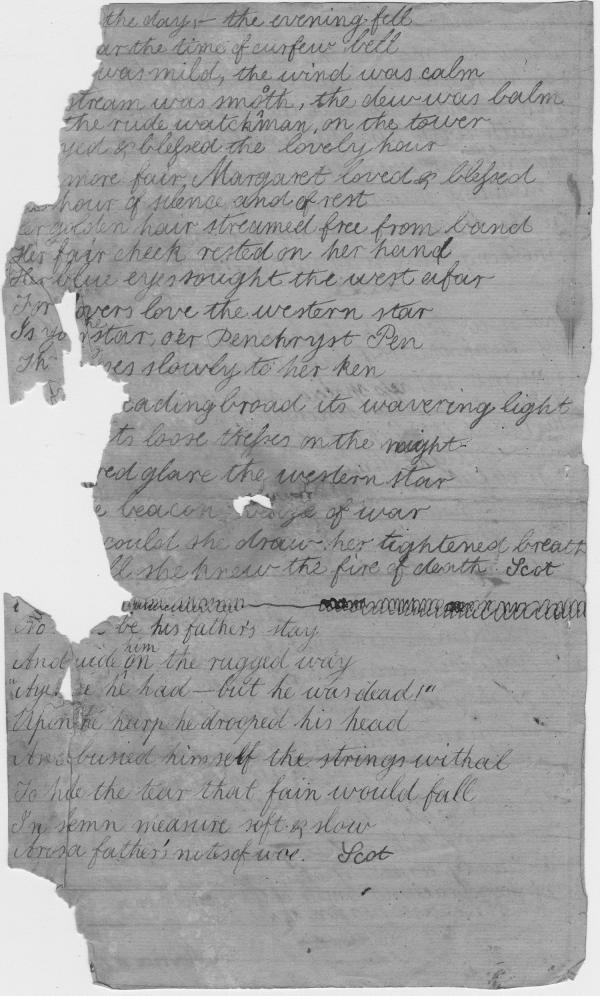 the day, & the evening fell
ar the time of curfew bell
was mild, the wind was calm
stream was smoth, the dew was balm
the rude watchman, on the tower
yed & blessed the lovely hour
more fair, Margaret loved & blessed
hour of silence and of rest
er golden hair streamed free from band
Her fair cheek rested on her hand
Her blue eyes sought the west afar
For lovers love the western star
Is yon star, oer Penchryst Pen
Th ses slowly to her ken
eading broad its wavering light
ts loose tresses on the night
red glare the western star
e beacon of war
could she draw her tightened breath
ll she knew the fire of death Scot
No be his father's stay
And uide him on the rugged way
"Ay he had — but he was dead!"
Upon he harp he drooped his head
And busied himself the strings withal
To hde the tear that fain would fall
In lemn measure soft & slow
Arosa father's notes of woe. Scot